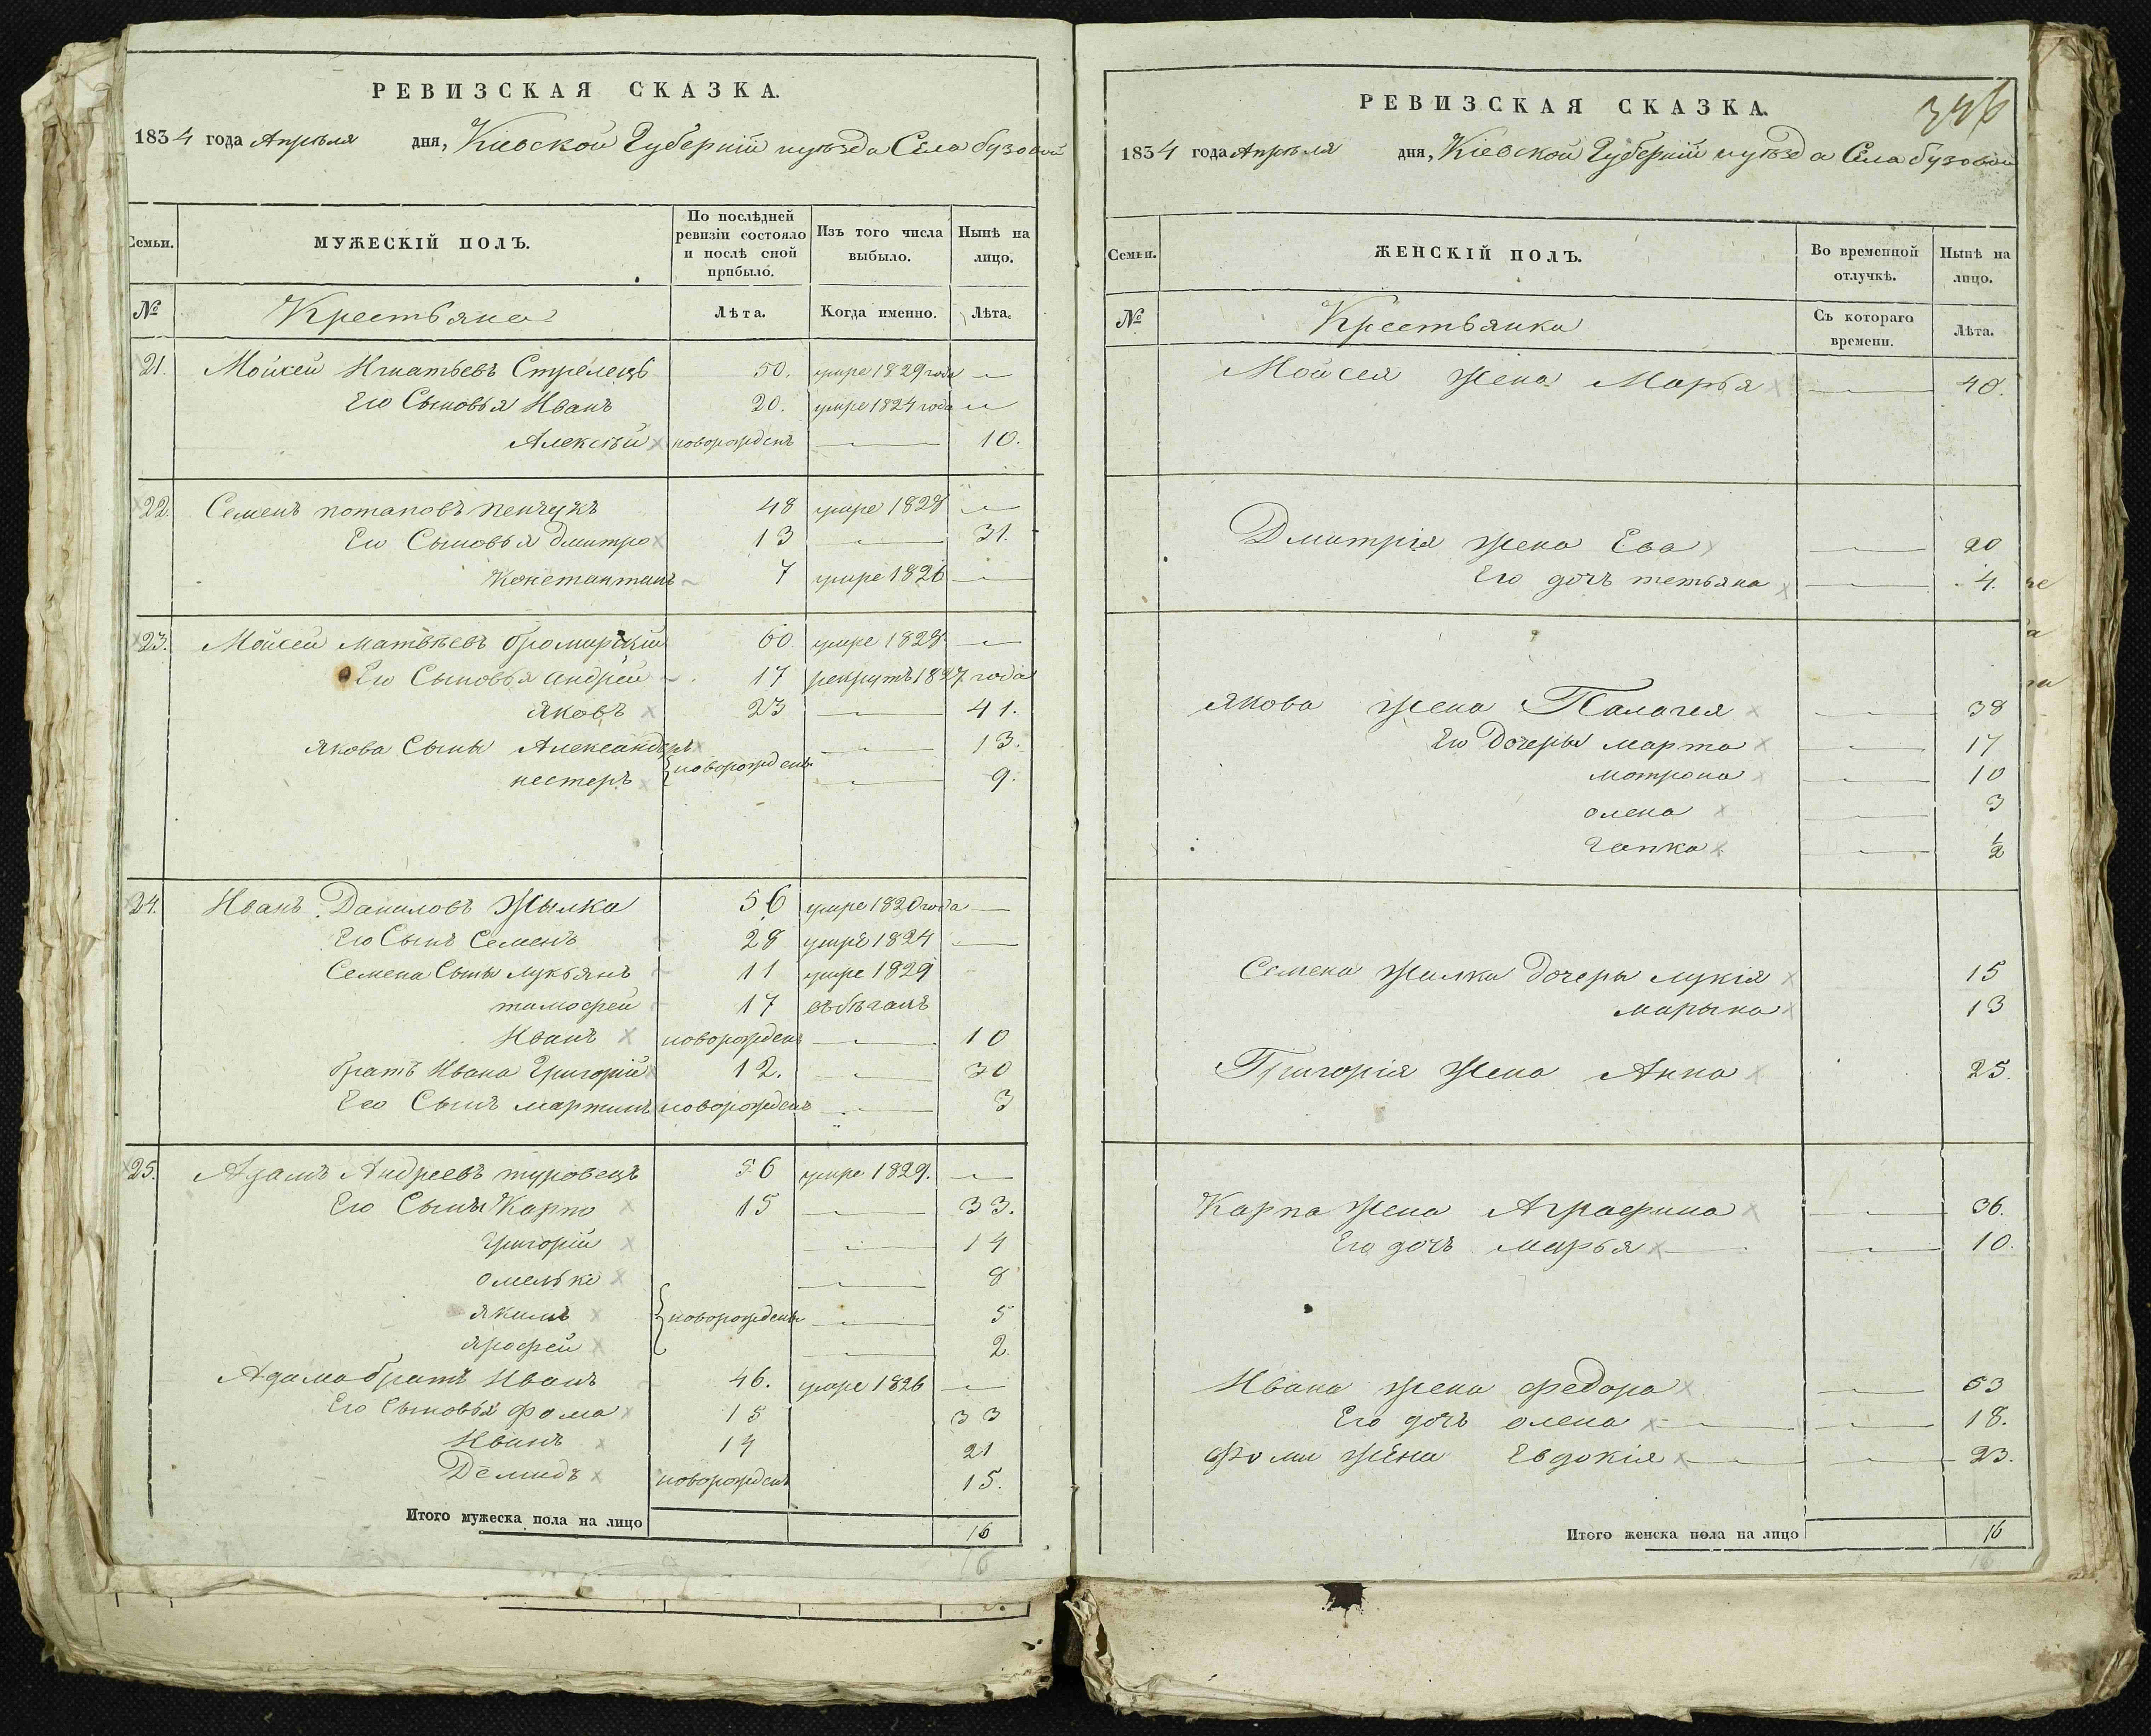 РЕВИЗСКАЯ СКАЗКА.
1834 года Апрѣля дня, Кіевской Губерніи и уѣзда Села бузовой
Семьи.
МУЖЕСКІЙ ПОЛЪ.
По послѣдней ревизіи состояло и послѣ оной прибыло.
Изъ того числа выбыло.
Нынѣ на лицо.
№ Крестьяне Лѣта. Когда именно. Лѣта.
21. Мойсей Игнатьевъ Стрелецъ 50. умре 1829 года —
Его Сыновья Иванъ 20. умре 1824 года —
Алексѣй х новорожденъ — 10.
22. Семенъ потаповъ пенчукъ 48 умре 1828 —
Его Сыновья дмитро х 13 — 31.
Константинъ 7 умре 1826 —
23. Мойсей матвѣевъ 60 умре 1828 —
Его Сыновья андрей 17 рекрутъ 1827 года
яковъ х 23 — 41.
якова Сыны Александръ х — 13.
нестеръ х новорожденъ — 9.
24. Иванъ Даниловъ Жылка 56 умре 1820 года —
Его Сынъ Семенъ 28 умре 1824 —
Семена Сыны лукьянъ 11 умре 1829
тимофей 17 въ бѣгахъ
Иванъ х новорожденъ — 10
братъ Ивана Григорій х 12. — 30
Его Сынъ мартинъ новорожденъ — 3
25. Адамъ Андреевъ туровецъ 56 умре 1829. —
Его Сынъ Карпо х 15 — 33.
Григорій х — 14
омелько х — 8
якимъ х новорожденъ — 5
ярофей х — 2.
Адама братъ Иванъ 46. умре 1826 —
Его Сыновья фома х 15 33
Иванъ х 14 21
Демидъ х новорожденъ 15.
Итого мужеска пола на лицо 16
16
РЕВИЗСКАЯ СКАЗКА.
1834 года Апрѣля дня, Кіевской Губерніи и уѣзда Села бузовой
Семьи.
ЖЕНСКІЙ ПОЛЪ.
Во временной отлучкѣ.
Нынѣ на лицо.
№ Крестьянки Съ котораго времени. Лѣта.
Мойсея жена Марья х — 48.
Дмитрія жена Ева х — 20
Его дочь тетьяна х — 4.
якова жена Палагея х — 38
Его Дочеры марта х — 17
мотрона х — 10
олена х — 3
гапка х — 1/2
Семена Жилки дочеры лукія х 15
марьяна х 13
Григорія жена Анна х 25.
Карпа жена Аграфина х — 36.
Его дочь марья х — 10.
Ивана жена федора х — 53
Его дочь олена х — 18.
Фомы жена Евдокія х — 23.
Итого женска пола на лицо 16
16